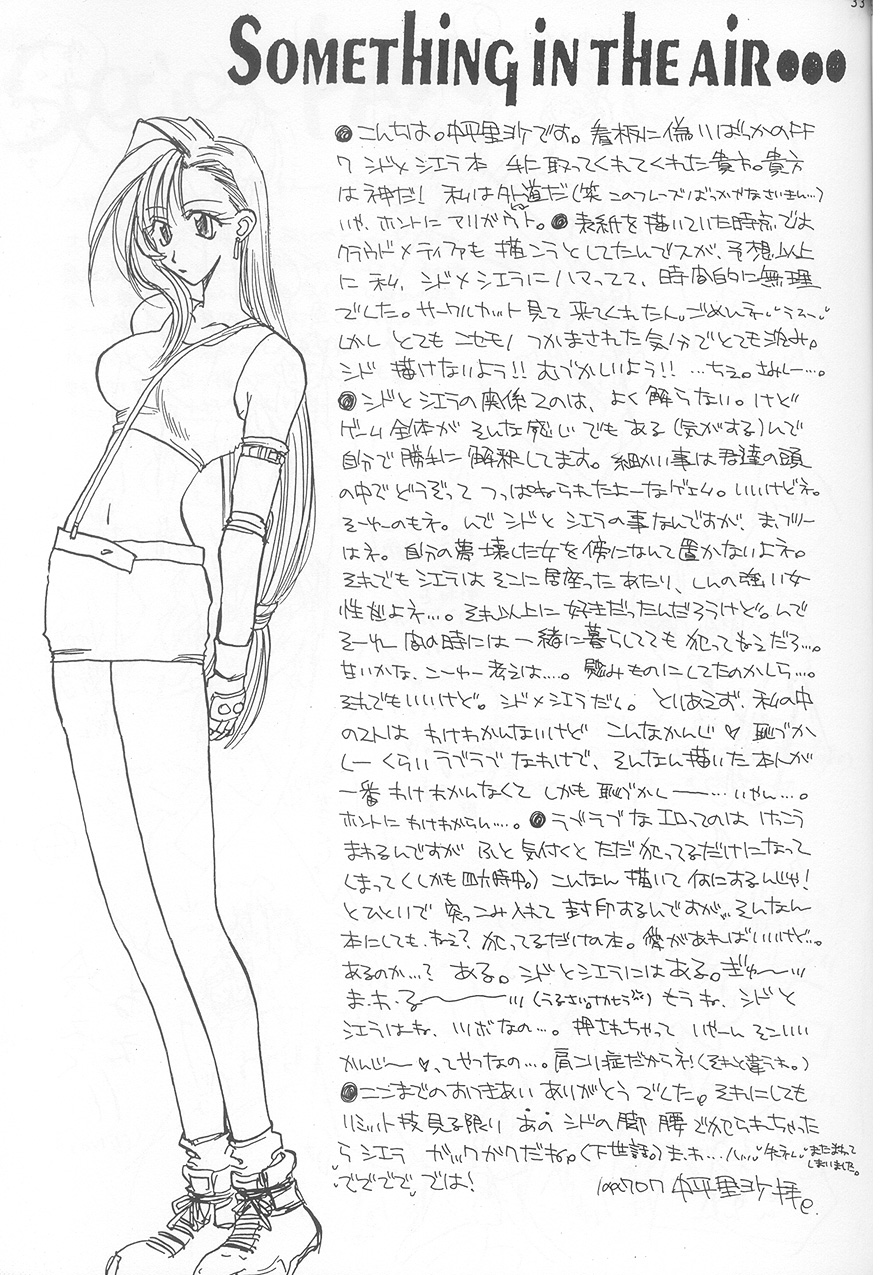 33
SOMETHING IN THE AIR●●●
こんちは。平里沙です。看板に偽いばっかのFF
7 シド×シエラ本 手に取ってくれてくれた貴方。貴方
は神だ! 私は外道だ(笑 このフレーズばっかかなさいきん…)
いや、ホントに アリガウト。●表紙を描いていた時点では
クラウド×ティファも 描こうとしてたんでスが、予想以上
に 私、シド×シエラに ハマってて、時間的に無理
でした。サークルカット見て 来てくれた人。ごめんネ
しかし とても ニセモノ つかまされた気分でとても沈み。
シド 描けないよう!! むづかしいよう!! …ちえ。さみしー…。
●シドとシエラの関係ての は、よく解らない。けど
ゲーム全体が そんな感じ でも ある(気がする)んで
自分で勝手に 解釈してます。細かい事は君達の頭
の中でどうぞって つっぱねられたよーなゲエム。いいけどネ。
そーゆーのもネ。んで シドと シエラの事なんですが、まブリー
はネ。自分の夢壊した女を傍になんて置かないよネ。
それでもシエラは そこに居座った あたり、しんの強い女
性だよネ…。それ以上に好きだったんだろうけど。んで
そーゆー 間の時には 一緒に暮らしてても 犯ってもうえだろ…。
甘いかな、こーゆー考えは…。慰みものにしてたのかしら…。
それでもいいけど。シド×シエラだし。とりあえず、私の中
の2人は わけわかんないけど こんなかんじ♡ 恥づか
しー くらいラブラブ なわけで、そんなん描いた本人が
一番 わけわかんなくて しかも 恥づかしー――… いやん…。
ホントに わけわからん…。●ラブラブな エロってのは けっこう
まわるんですが ふと気付くと ただ犯ってるだけになって
しまって(しかも四六時中。)こんなん 描いて何にするんじゃ!
とひとりで 突っこみ入れて 封印するんですが、そんなん
本にしても ねえ? 犯ってるだけの本。愛があればいいけど…。
あるのか…? ある。シドとシエラにはある。ぎゅ〜
ま・わ・る〜 (うるさい。) もうね、シドと
シエラはね、ツボなの…。押されちゃって いや〜ん そこいい
かんじ〜♡、ってやつなの…。肩こり症だからネ!(それと違うわ。)
●ここまでのおつきあい ありがとう でした。それにしても
リミット技見る限り あの シドの脚 腰 でかせられちゃった
ら シエラ ガックガクだね。(下世話。)まわ… 失礼
またまわって
しまいました。
でででで では!